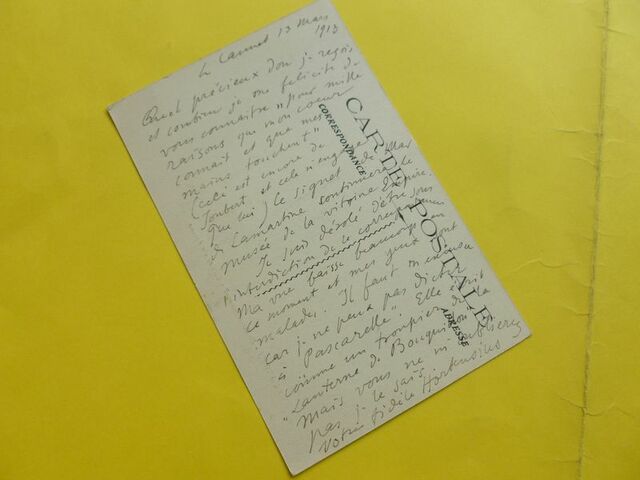 le Cannet 13 Mars
1913
Quel précieux don je reçois
et combien je me félicite de
vous connaitre "pour mille
raisons que mon coeur
connait et que mes
mains touchent"
(ceci est encore de
Joubert et cela n'engage
que lui) le signet de
de Lamartine continuera le
musée de la vitrine Empire.
Je suis désolé d'être sous
l'interdiction de le
Ma vue baisse beaucoup en
ce moment et mes yeux sont
malades. Il faut m'excuser
car je ne peux pas dicter
à "Pascarelle". Elle écrit
comme un troupier de la
"Lanterne de Bouquillon"
mais vous ne m'oublierez
pas je le sais.
Votre fidèle Hortensius
CARTE POSTALE
CORRESPONDANCE
ADRESSE